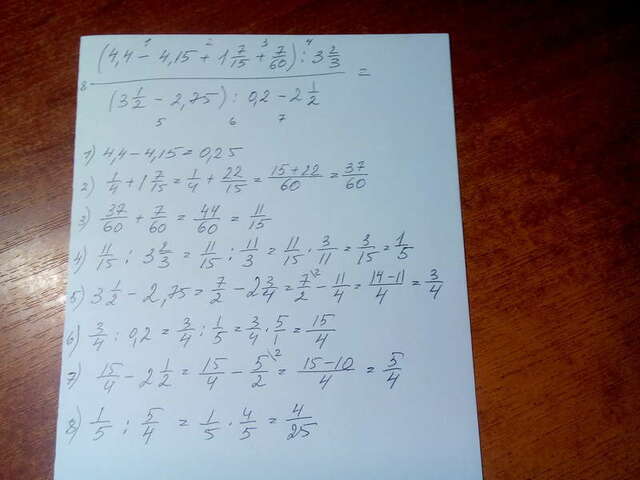 (4,4 - 4,15 + 1 7/15 + 7/60) : 3 2/3
(3 1/2 - 2,75) : 0,2 - 2 1/2 =
1) 4,4 - 4,15 = 0,25
2) 1/4 + 1 7/15 = 1/4 + 22/15 = (15+22)/60 = 37/60
3) 37/60 + 7/60 = 44/60 = 11/15
4) 11/15 : 3 2/3 = 11/15 : 11/3 = 11/15 · 3/11 = 3/15 = 1/5
5) 3 1/2 - 2,75 = 7/2 - 2 3/4 = 7/2 \2 - 11/4 = (14-11)/4 = 3/4
6) 3/4 : 0,2 = 3/4 : 1/5 = 3/4 · 5/1 = 15/4
7) 15/4 - 2 1/2 = 15/4 - 5/2 \2 = (15-10)/4 = 5/4
8) 1/5 : 5/4 = 1/5 · 4/5 = 4/25